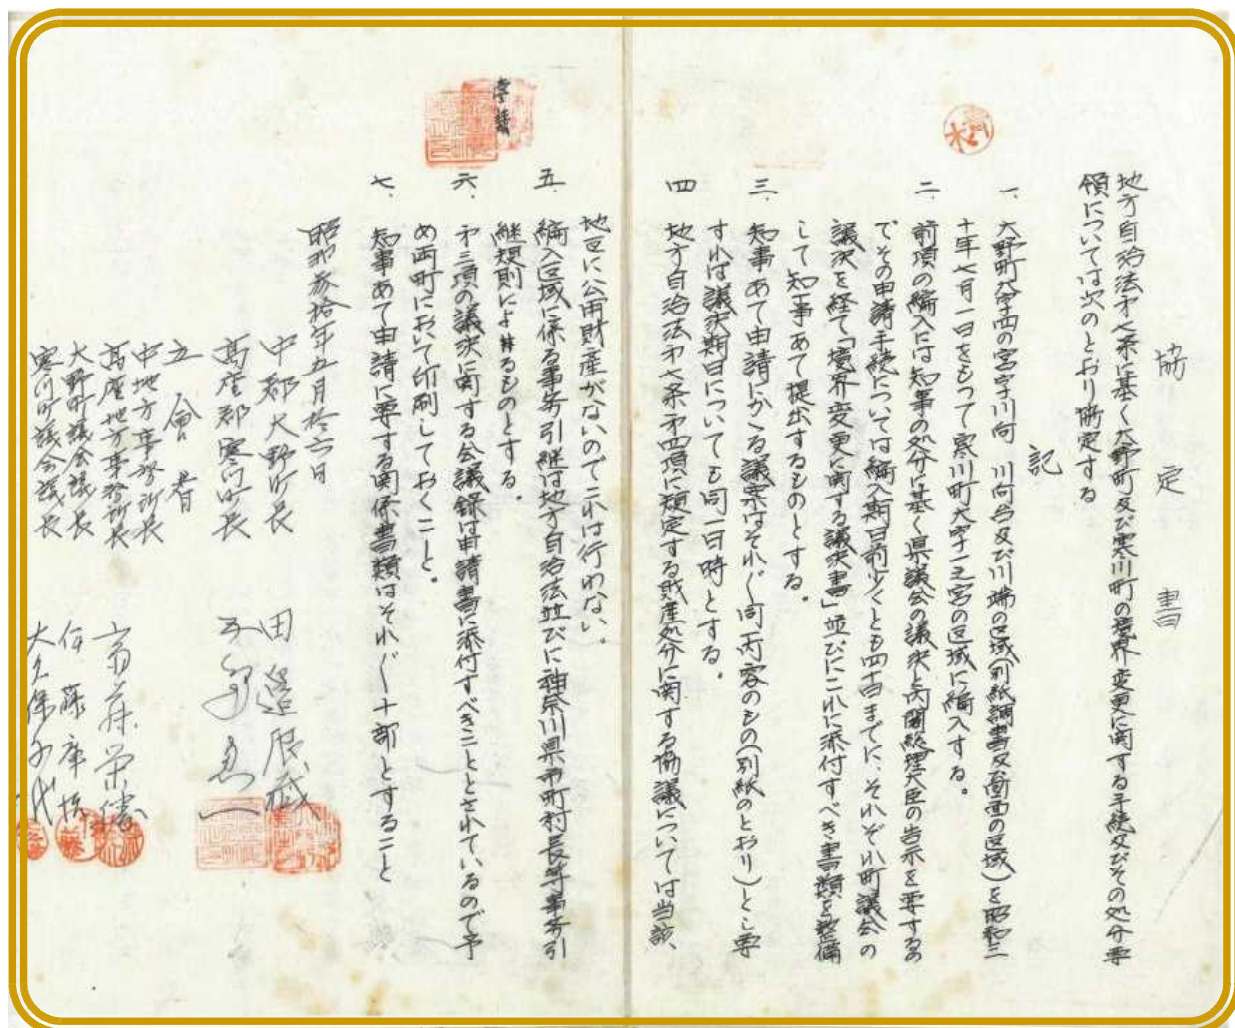 協定書
地方自治法第七条に基く大野町及び寒川町の境界変更に関する手続及びその処分要
領については次のとおり協定する
記
一、大野町大字四の宮字川向 川向台及び川端の区域(別紙調書及図面の区域)を昭和三
十年七月一日をもつて寒川町大字一之宮の区域に編入する。
二、前項の編入には知事の処分に基く県議会の議決と内閣総理大臣の告示を要するの
でその申請手続については編入期日前少くとも四十日までに、それぞれ町議会の
議決を経て「境界変更に関する議決書」並びにこれに添付すべき書類を整備
して知事あて提出するものとする。
三、知事あて申請にかゝる議案はそれ〲同一内容のもの(別紙のとおり)とし要
すれば議決期日についても同一日時とする。
四 地方自治法第七条第四項に規定する財産処分に関する協議については当該
地区に公用財産がないのでこれは行わない。
五、編入区域に係る事務引継は地方自治法並びに神奈川県市町村長等事務引
継規則によるものとする。
六、第三項の議決に関する会議録は申請書に添付すべきこととされているので予
め両町において印刷しておくこと。
七、知事あて申請に要する関係書類はそれ〲十部とすること
昭和参拾年五月拾六日
中郡大野町長 田辺辰蔵
高座郡寒川町長
立会者
中地方事務所長
高座地方事務所長 斎藤栄
大野町議会議長 伊藤
寒川町議会議長 大久保